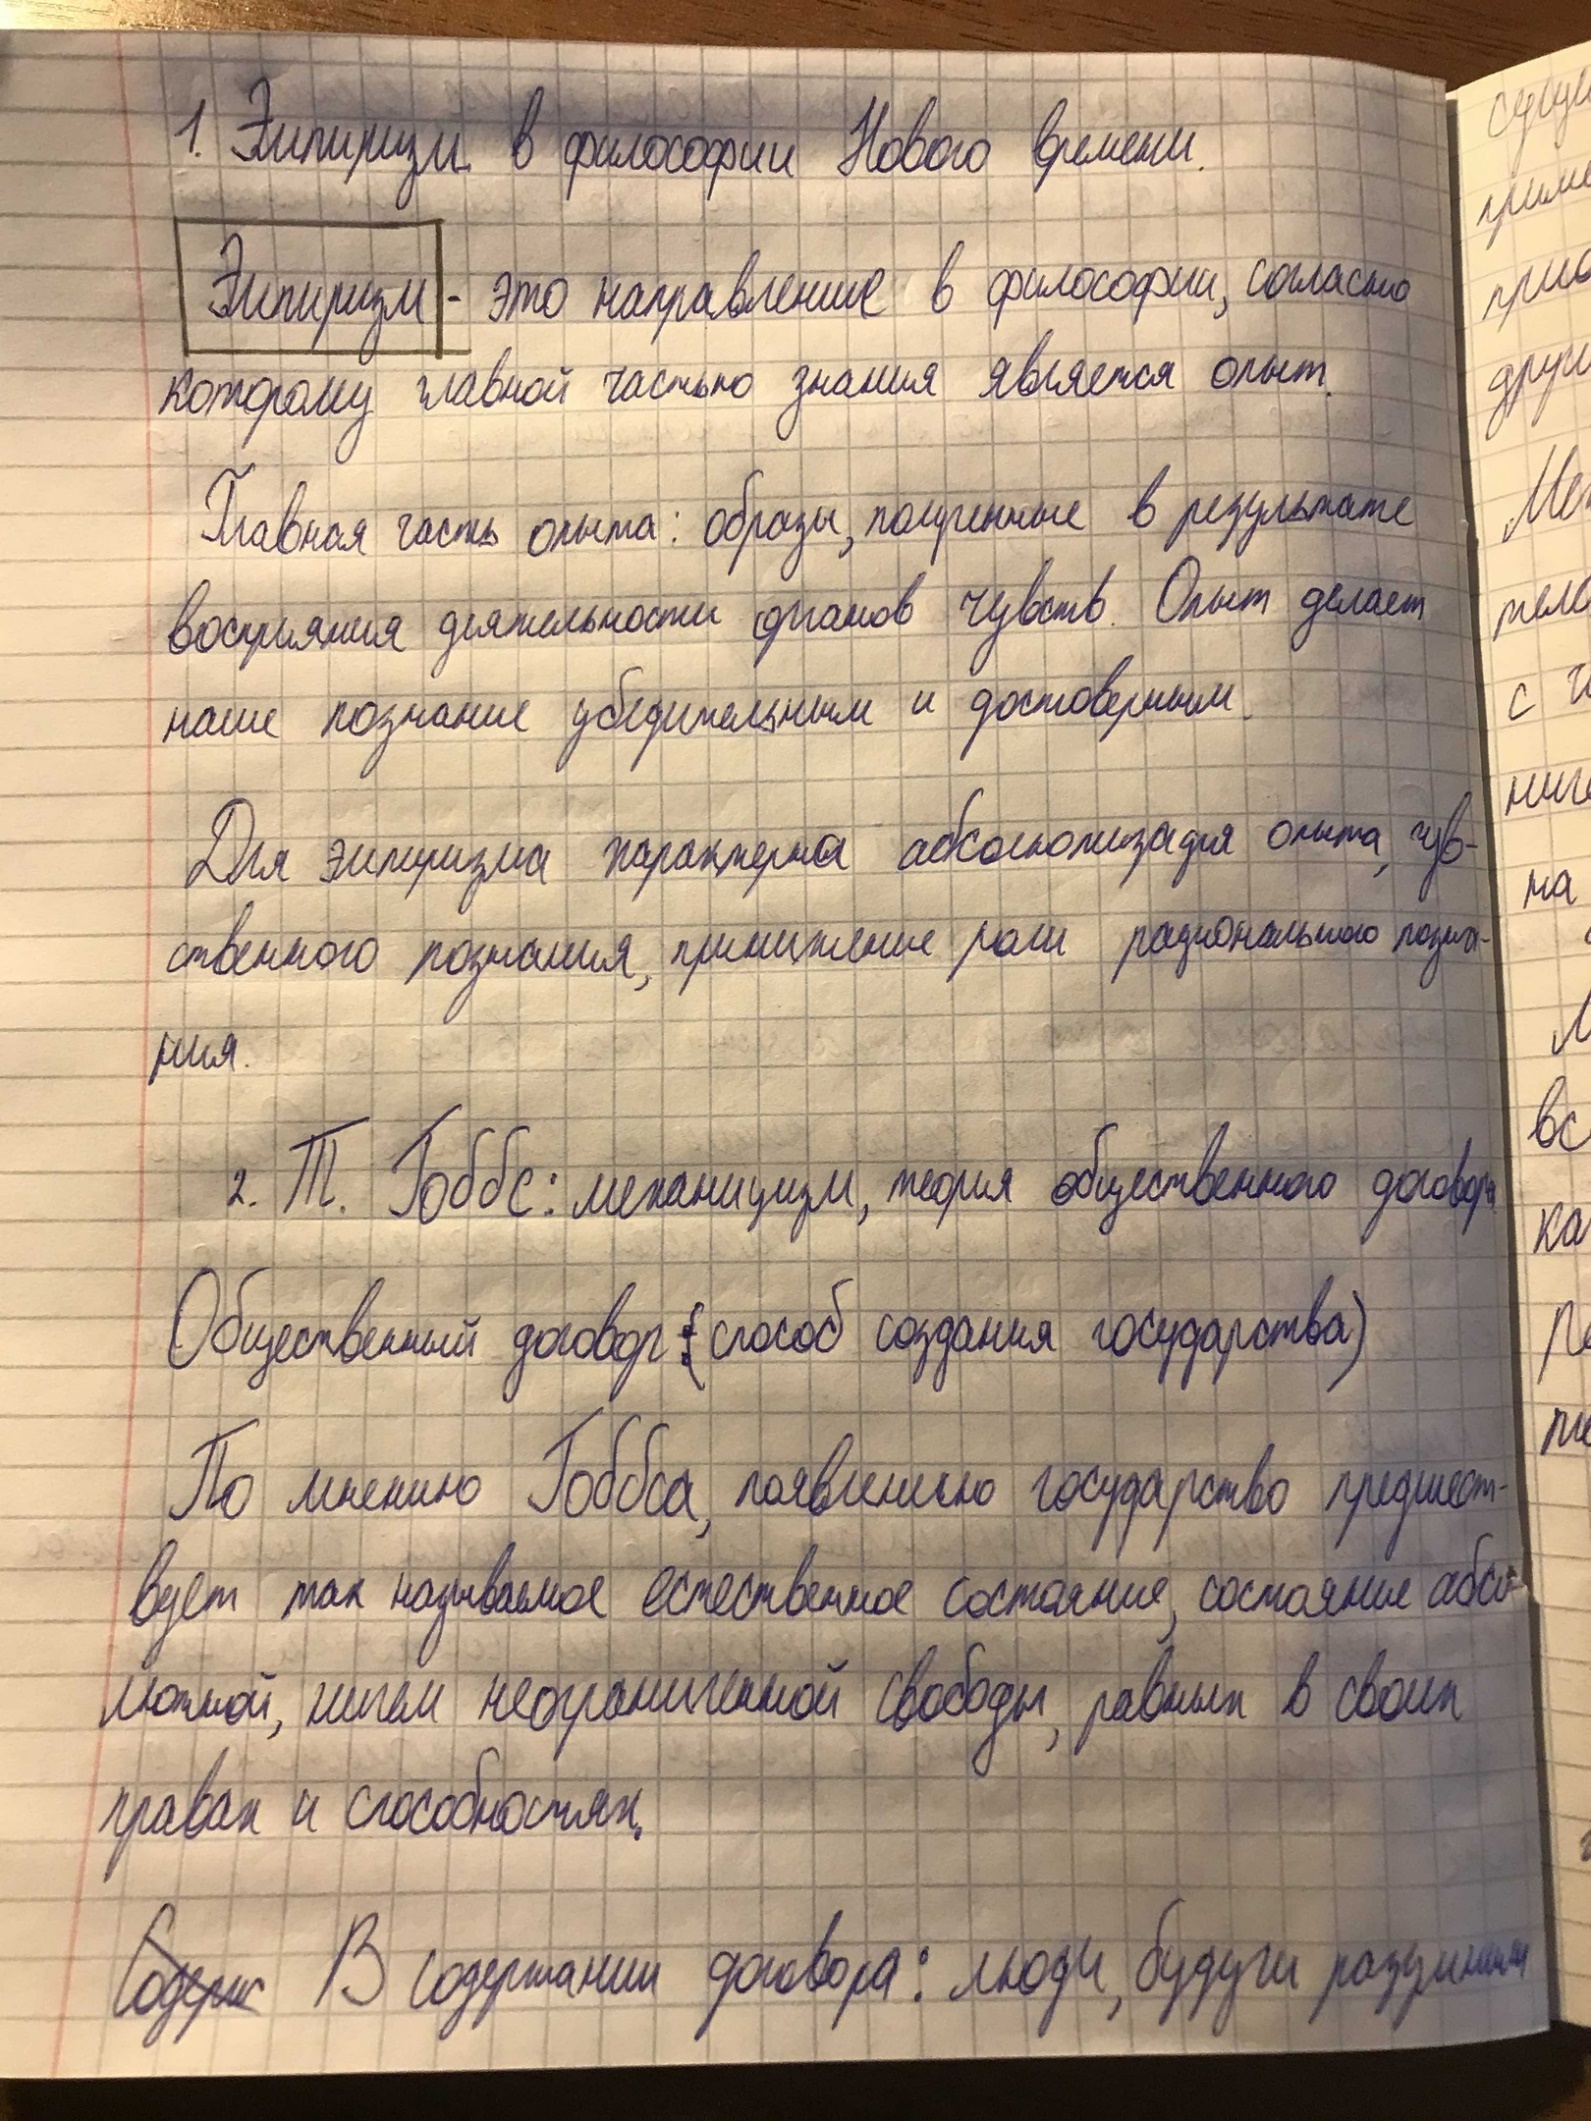 1. Эмпиризм в философии Нового времени.
Эмпиризм - это направление в философии, согласно
которому главной частью знания является опыт.
Главная часть опыта: образы, полученные в результате
восприяния деятельности органов чувств. Опыт делает
наше познание убедительным и достоверным.
Для эмпиризма характерна абсолютизация опыта, чув-
ственного познания, принижение роли рационального позна-
ния.
2. Т. Гоббс: механицизм, теория общественного договора
Общественный договор (способ создания государства)
По мнению Гоббса, появлению государство предшест-
вует так называемое естественное состояние, состояние абсо-
лютной, ничем неограниченной свободы, равных в своих
правах и способностях.
Содерж В содержании договора: люди, будучи разумными
сущ
приме
друг
теле
с
на
вс
ка